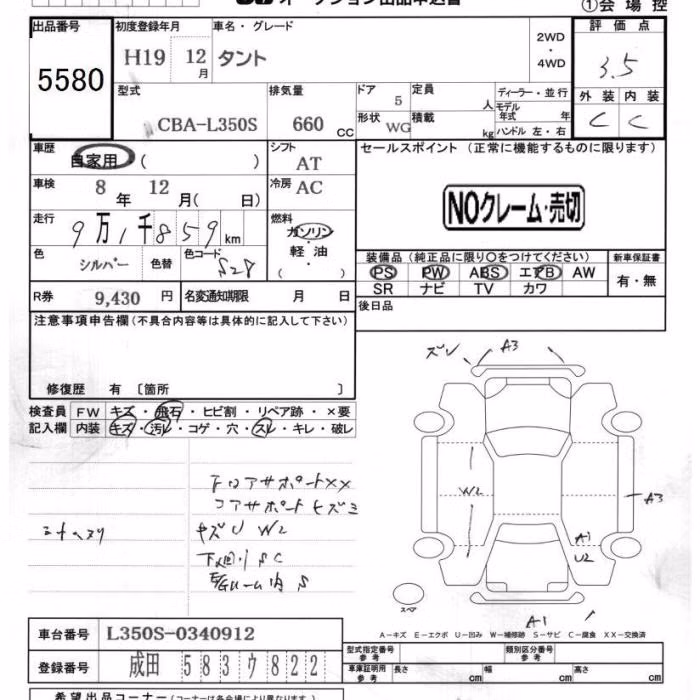 オークション出品申込書
①会場控
出品番号
5580
初度登録年月
H19 12月
車名・グレード
タント
2WD
・
4WD
評価点
3.5
外装 内装
C C
型式
CBA-L350S
排気量
660 CC
ドア
5
定員
人
形状
WG
積載
kg
ディーラー・並行
モデル年式 年
ハンドル 左・右
車歴
自家用 ( )
シフト
AT
車検
8年 12月( 日)
冷房
AC
走行
9万1千859km
燃料
ガソリン
軽油
( )
色
シルバー
色替
色コード
S28
R券
9,430 円
名変通知期限 月 日
セールスポイント (正常に機能するものに限ります)
NOクレーム・売切
装備品 (純正品に限り○をつけてください)
PS PW ABS エアB AW
SR ナビ TV カワ
新車保証書
有・無
後日品
注意事項申告欄 (不具合内容等は具体的に記入して下さい)
修復歴 有 〔箇所 〕
検査員記入欄
FW キズ・飛石・ヒビ割・リペア跡・×要
内装 キズ・汚レ・コゲ・穴・スレ・キレ・破レ
FロアサポートXX
コアサポートヒズミ
キズU W2
下廻りSC
Eルーム内S
ズレ
A3
W2
A3
A1
U2
スペア
A1
A-キズ E-エクボ U-凹み W-補修跡 S-サビ C-腐食 XX-交換済
車台番号
L350S-0340912
登録番号
成田 583ウ822
型式指定番号
参考
類別区分番号
参考
車庫証明用
参考
長さ cm
幅 cm
高さ cm
希望出品コーナー (コーナーは各会場により異なります)